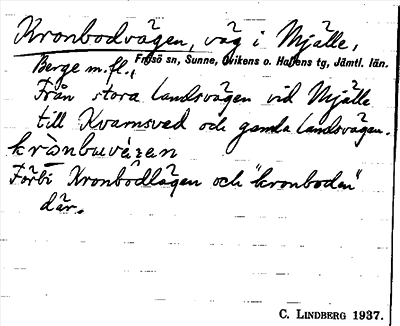 Kronbodvägen, väg i Mjälle,
Berge m.fl., Frösö sn, Sunne, Ovikens o. Hallens tg, Jämtl. län.
Från stora landsvägen vid Mjälle
till Kvarnsved och gamla landsvägen.
krånbuvä́ɡen
Förbi Kronbodlägen och "kronboden"
där.
C. LINDBERG 1937.